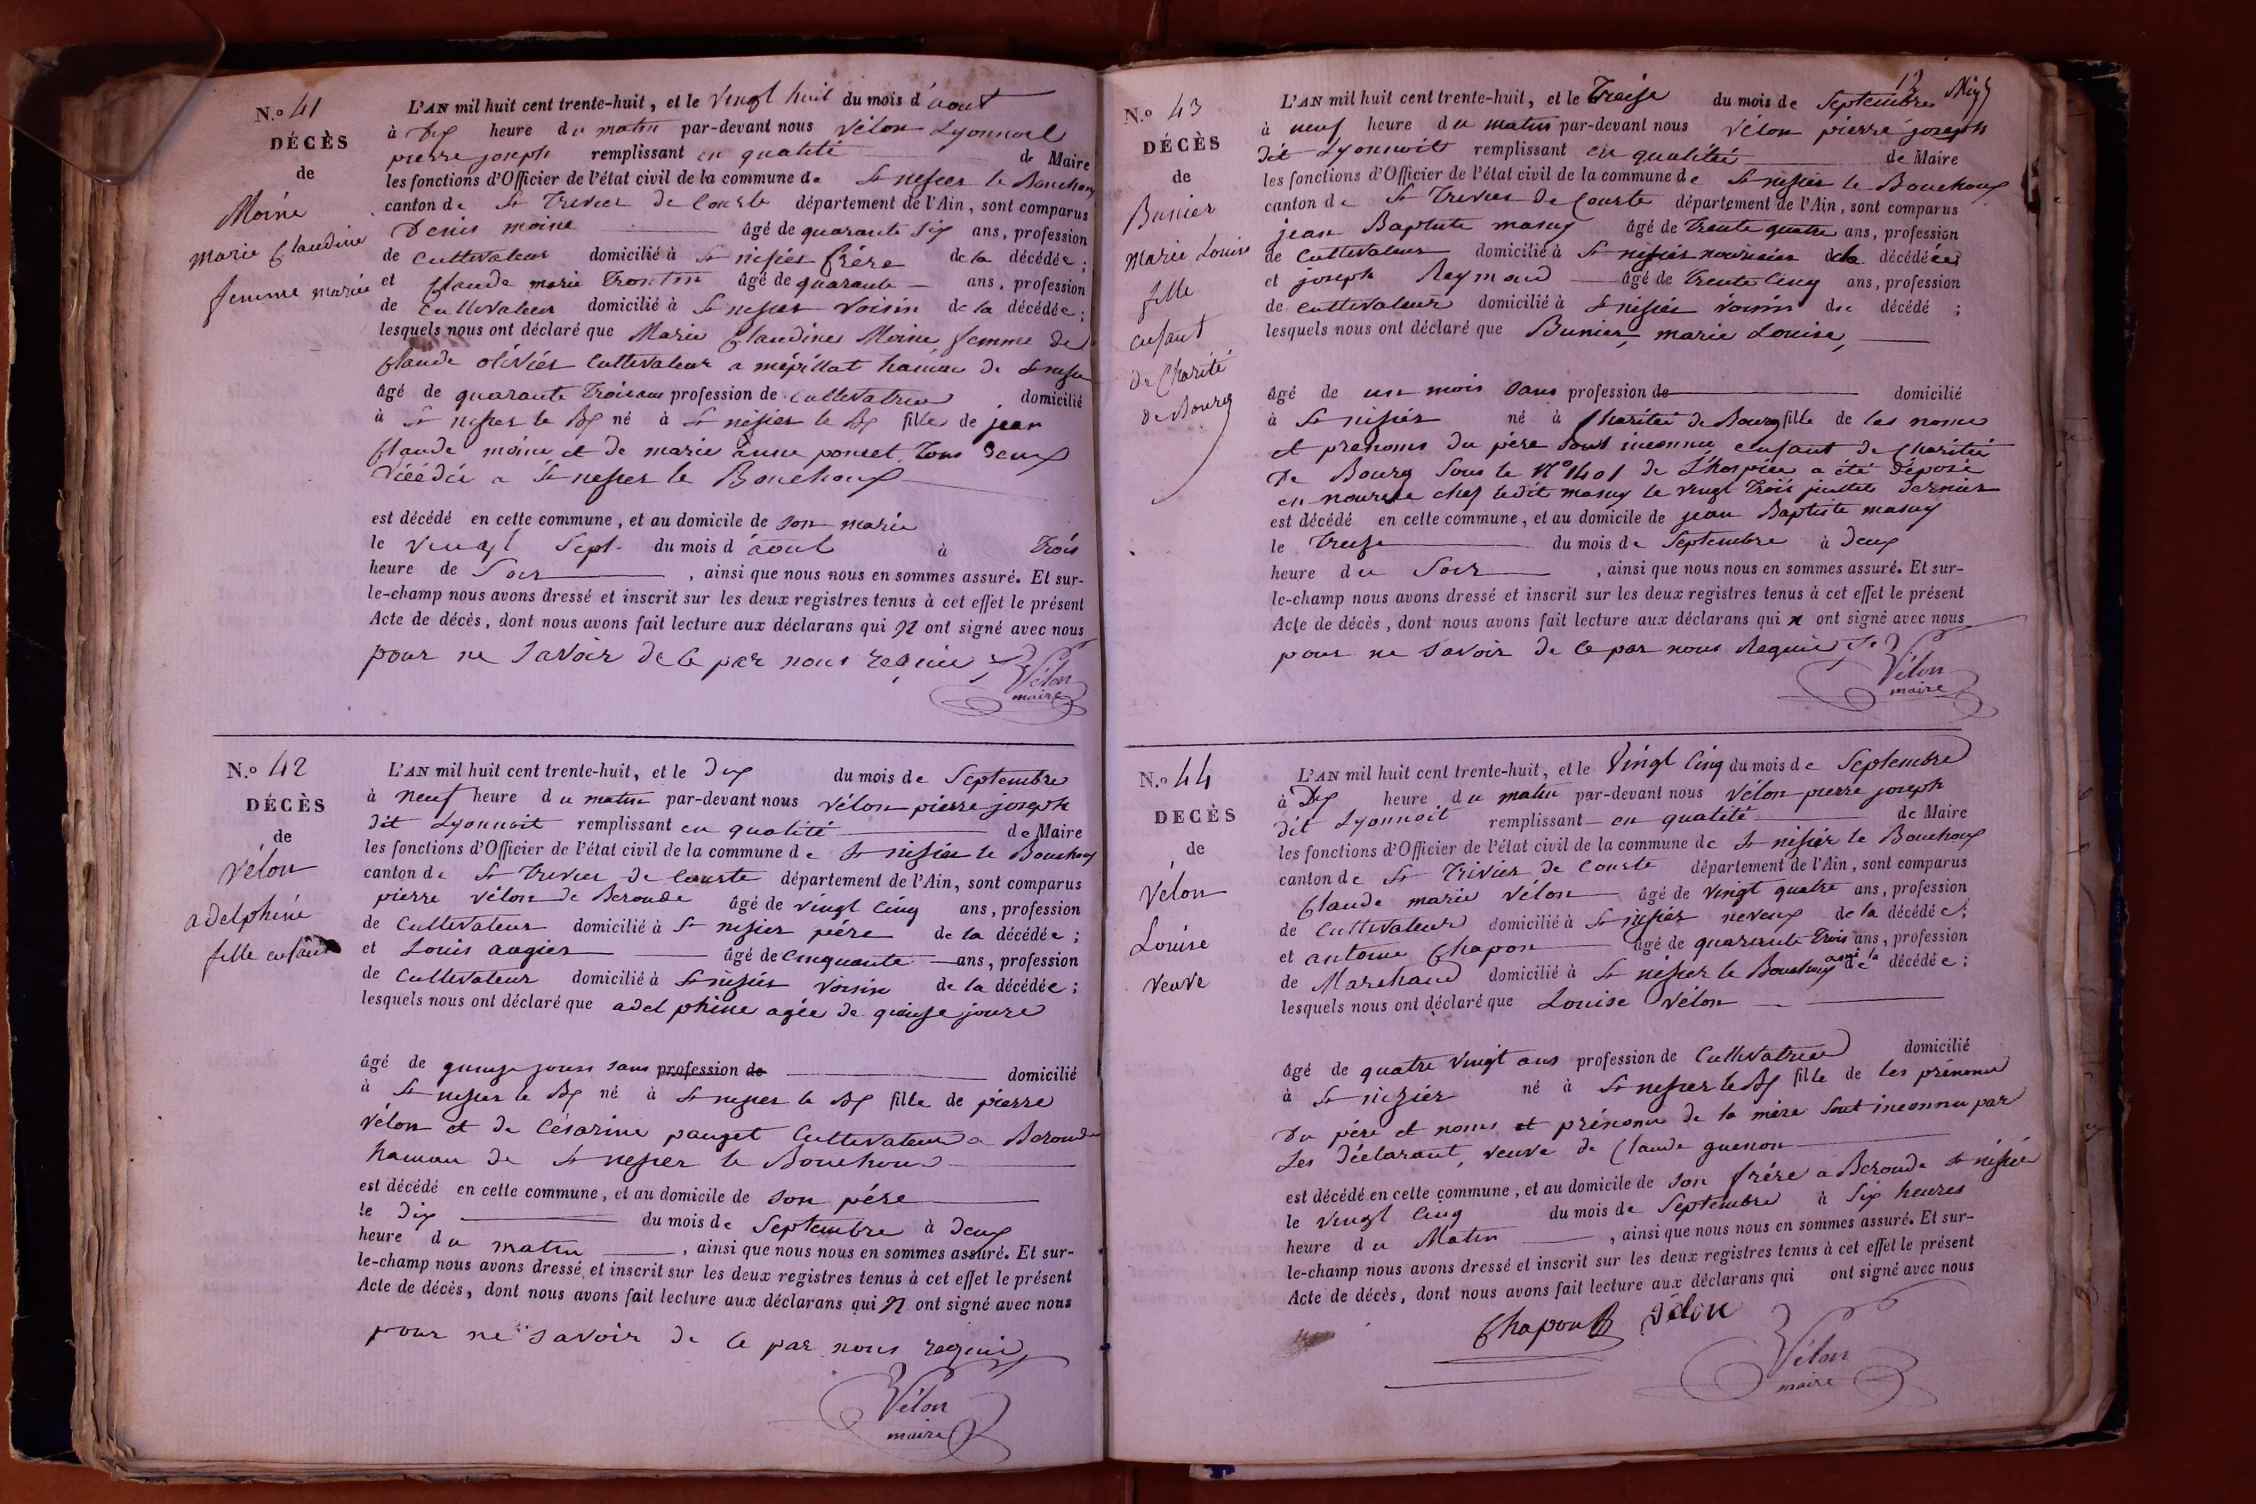 N.o 41
DÉCÈS
de
Moine
marie Claudine
femme mariée
L'AN mil huit cent trente-huit, et le vingt huit du mois d'aout
à Dix heure du matin par-devant nous vélon Lyonnoit
pierre joseph remplissant en qualité de Maire
les fonctions d'Officier de l'état civil de la commune de St nisier le Bouchoux
canton de St Trivier de Courte département de l'Ain, sont comparus
Denis moine âgé de quarante six ans, profession
de Cultivateur domicilié à St nisier frére de la décédée;
et Claude marie Trontin âgé de quarante ans, profession
de Cultivateur domicilié à St nisier voisin de la décédée;
lesquels nous ont déclaré que Marie Claudine Moine femme de
Claude oliviér Cultivateur a mépillat hamau de St nisier
âgé de quarante Trois ans profession de Cultivatrice domicilié
à St nisier le Bx né à St nisier le Bx fille de jean
Claude moine et de marie anne poncet Tous deux
Décédée a St nisier le Bouchoux
est décédé en cette commune, et au domicile de son marie
le vingt Sept du mois d'aout à Trois
heure de Soir, ainsi que nous nous en sommes assuré. Et sur-
le-champ nous avons dressé et inscrit sur les deux registres tenus à cet effet le présent
Acte de décès, dont nous avons fait lecture aux déclarans qui n ont signé avec nous
pour ne savoir de ce par nous requie
Vélon
maire
N.o 42
DÉCÈS
de
Vélon
adelphine
fille enfant
L'AN mil huit cent trente-huit, et le dix du mois de Septembre
à neuf heure du matin par-devant nous vélon pierre joseph
dit Lyonnoit remplissant en qualité de Maire
les fonctions d'Officier de l'état civil de la commune de St nisier le Bouchoux
canton de St Trivier de Courte département de l'Ain, sont comparus
pierre vélon de Beroude âgé de vingt cinq ans, profession
de Cultivateur domicilié à St nisier pére de la décédée;
et Louis augier âgé de cinquante ans, profession
de Cultivateur domicilié à St nisier voisin de la décédée;
lesquels nous ont déclaré que adelphine agée de quinze joure
âgé de quinze jours sans profession de domicilié
à St nisier le Bx né à St nisier le Bx fille de pierre
vélon et de Césarine pauget Cultivateur a Beroude
hamau de St nisier le Bouchoux
est décédé en cette commune, et au domicile de son pére
le dix du mois de Septembre à deux
heure du matin, ainsi que nous nous en sommes assuré. Et sur-
le-champ nous avons dressé et inscrit sur les deux registres tenus à cet effet le présent
Acte de décès, dont nous avons fait lecture aux déclarans qui n ont signé avec nous
pour ne savoir de ce par nous requie
Vélon
maire
12
N.o 43
DÉCÈS
de
Bunier
Marie Louise
fille
enfant
de Charité
de Bourg
L'AN mil huit cent trente-huit, et le Treize du mois de Septembre
à neuf heure du matin par-devant nous vélon pierre joseph
dit Lyonnoit remplissant en qualitéé de Maire
les fonctions d'Officier de l'état civil de la commune de St nisier le Bouchoux
canton de St Trivier de Courte département de l'Ain, sont comparus
jean Baptiste masuy âgé de Trente quatre ans, profession
de Cultivateur domicilié à St nisier nouricier de la décédée;
et joseph Raymond âgé de Trente Cinq ans, profession
de Cultivateur domicilié à St nisier voisin du décédé;
lesquels nous ont déclaré que Bunier, marie Louise,
âgé de un mois Sans profession de domicilié
à St nisier né à Charitée de Bourg fille de Les noms
et prenoms du pére sont inconnu enfant de Charitée
De Bourg Sous le No 1401 de L'hospice a été déposé
en nourice chez ledit masuy le vingt Trois juillet dernier
est décédé en cette commune, et au domicile de jean Baptiste masuy
le Treize du mois de Septembre à deux
heure du Soir, ainsi que nous nous en sommes assuré. Et sur-
le-champ nous avons dressé et inscrit sur les deux registres tenus à cet effet le présent
Acte de décès, dont nous avons fait lecture aux déclarans qui n ont signé avec nous
pour ne savoir de ce par nous Requie
Vélon
maire
N.o 44
DECÈS
de
Vélon
Louise
veuve
L'AN mil huit cent trente-huit, et le vingt Cinq du mois de Septembre
à Dix heure du matin par-devant nous Vélon pierre joseph
dit Lyonnoit remplissant en qualité de Maire
les fonctions d'Officier de l'état civil de la commune de St nisier le Bouchoux
canton de St Trivier de Courte département de l'Ain, sont comparus
Claude marie Vélon âgé de vingt quatre ans, profession
de Cultivateur domicilié à St nisier neveux de la décédée;
et antoine Chapon âgé de quarante Trois ans, profession
de Marchand domicilié à St nisier le Bouchoux ami de la décédée;
lesquels nous ont déclaré que Louise Vélon
âgé de quatre vingt ans profession de Cultivatrice domicilié
à St nizier né à St nisier le Bx fille de les prénoms
Du pére et noms et prénoms de la mére Sont inconnu par
Les déclarant, veuve de Claude guenon
est décédé en cette commune, et au domicile de son frére a Beroude St nisier
le vingt Cinq du mois de Septembre à Six heures
heure du Matin, ainsi que nous nous en sommes assuré. Et sur-
le-champ nous avons dressé et inscrit sur les deux registres tenus à cet effet le présent
Acte de décès, dont nous avons fait lecture aux déclarans qui ont signé avec nous
Chapon Vélon
Vélon
maire